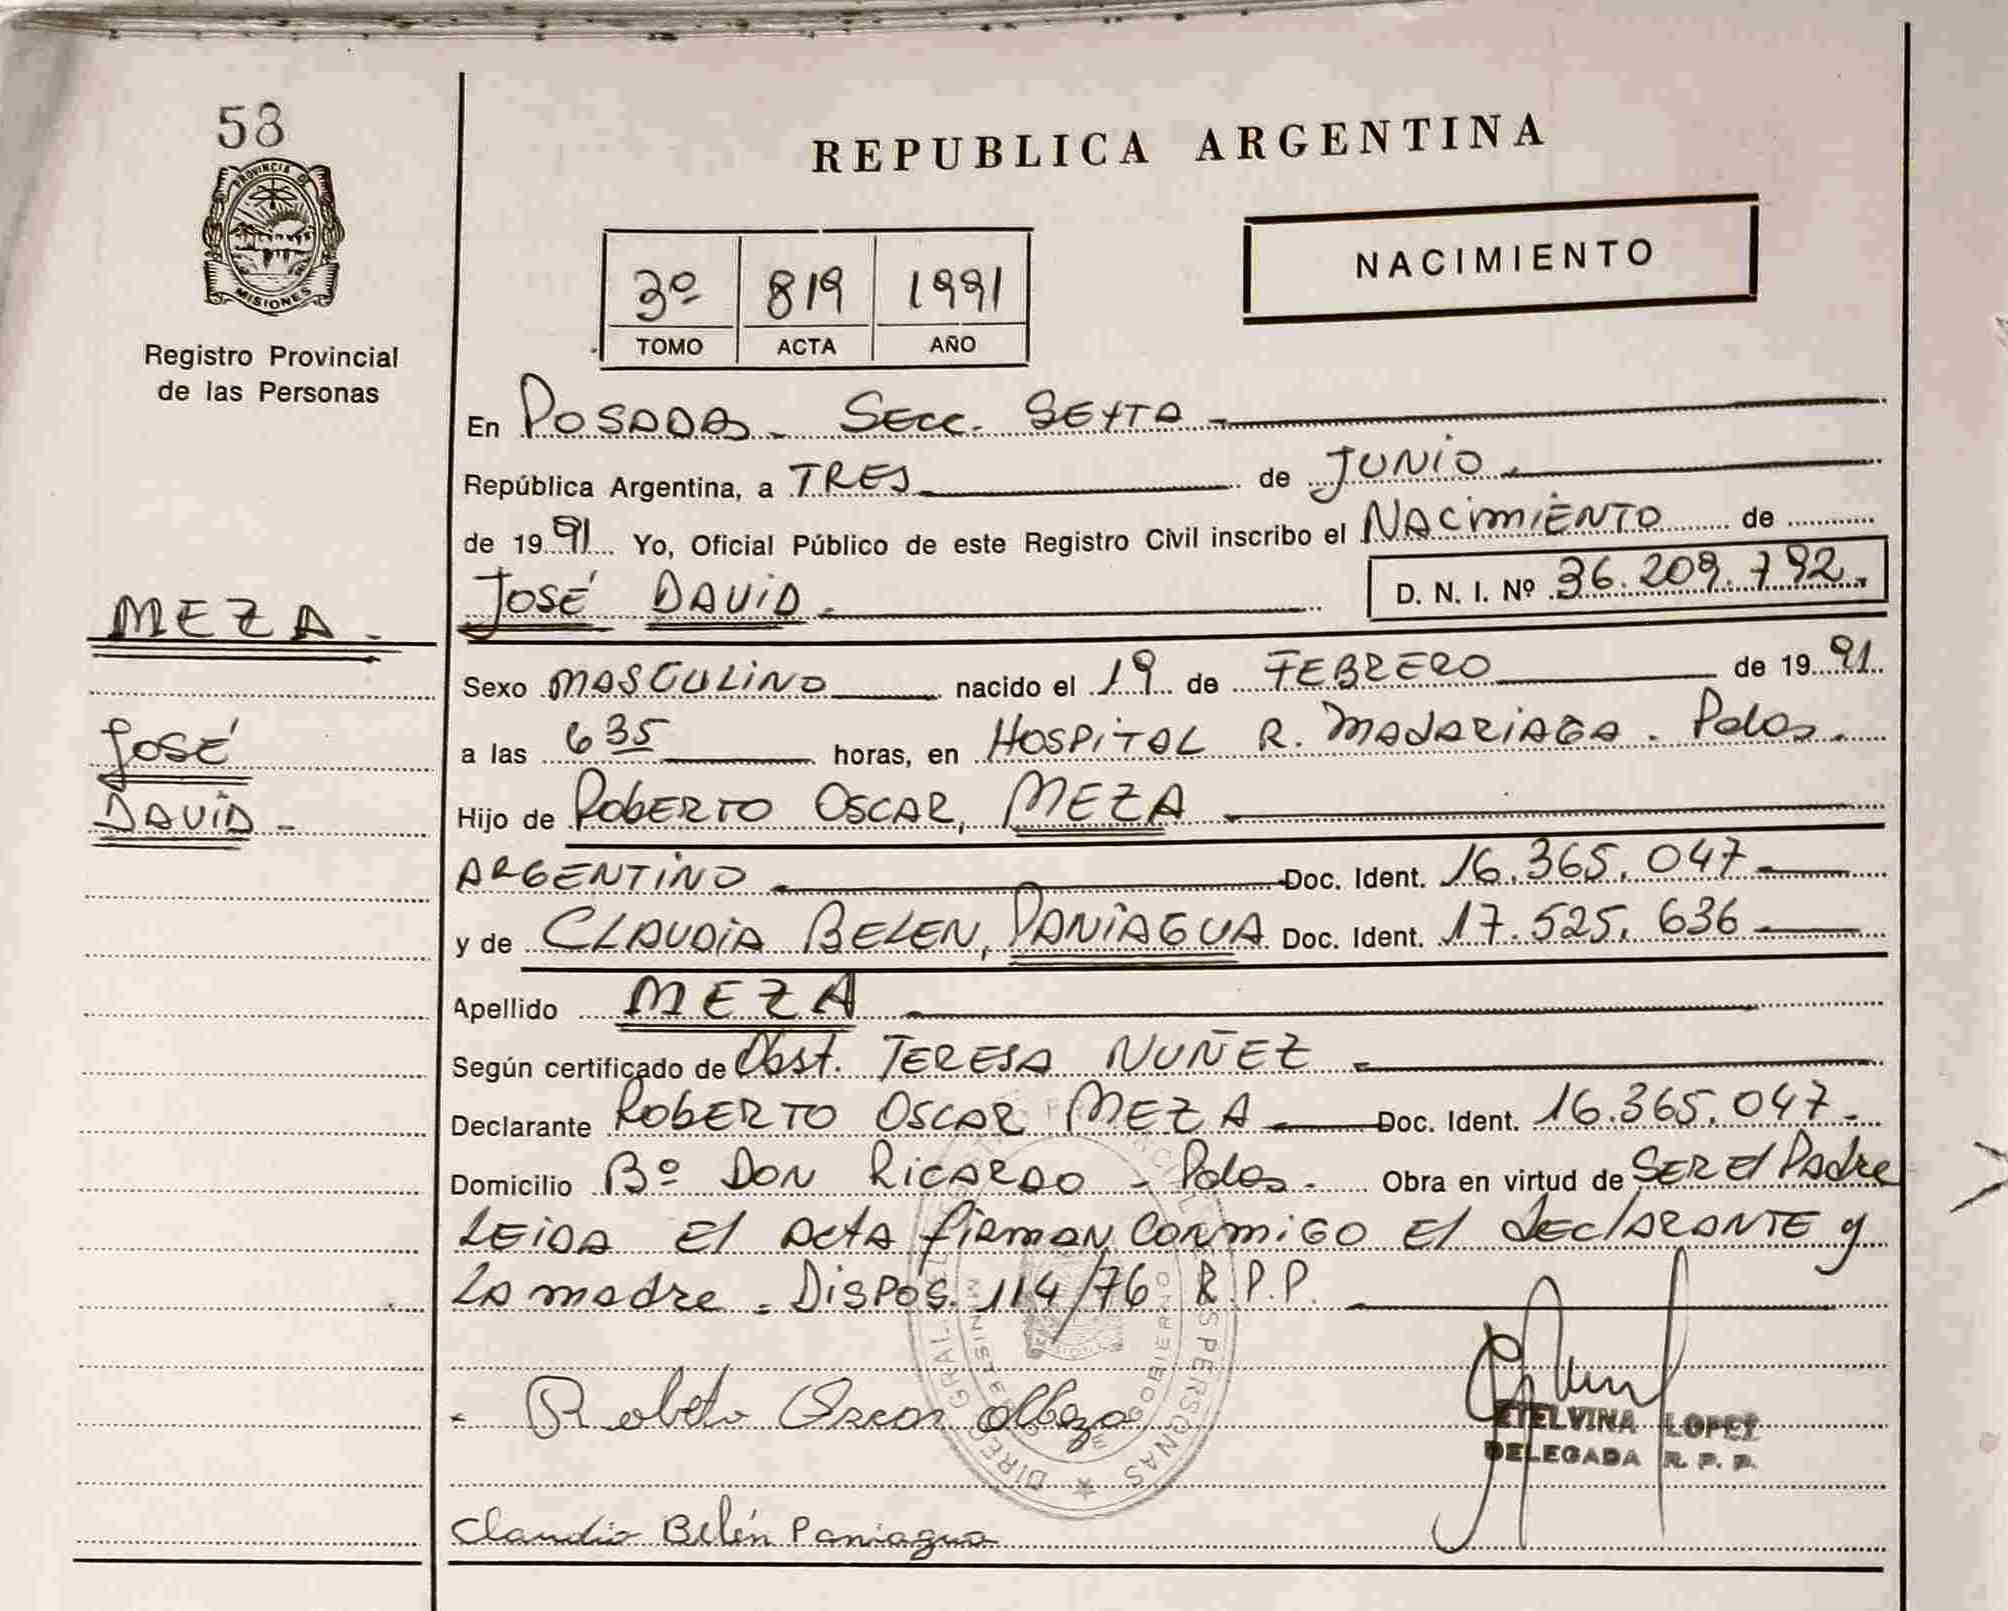 58
PROVINCIA DE
MISIONES
Registro Provincial
de las Personas
REPUBLICA ARGENTINA
NACIMIENTO
3º 819 1991
TOMO ACTA AÑO
En POSADAS - SECC. SEXTA
República Argentina, a TRES de JUNIO
de 1991 Yo, Oficial Público de este Registro Civil inscribo el NACIMIENTO de
JOSÉ DAVID.- D. N. I. Nº 36.209.792.
MEZA.-
Sexo MASCULINO nacido el 19 de FEBRERO de 1991.
JOSÉ
a las 6 35 horas, en HOSPITAL R. MADARIAGA. Pdas.
DAVID -
Hijo de ROBERTO OSCAR, MEZA
ARGENTINO Doc. Ident. 16.365.047
y de CLAUDIA BELEN, PANIAGUA Doc. Ident. 17.525.636
Apellido MEZA
Según certificado de Obst. TERESA NUÑEZ
Declarante ROBERTO OSCAR MEZA Doc. Ident. 16.365.047-
Domicilio Bº DON RICARDO - Pdas - Obra en virtud de SER El Padre
LEIDA El ActA firman conmigo El declARANTE y
LA madre - Dispos. 114/76 R.P.P.
Roberto Oscar Meza
ETELVINA LOPEZ
DELEGADA R. P. P.
Claudia Belén Paniagua